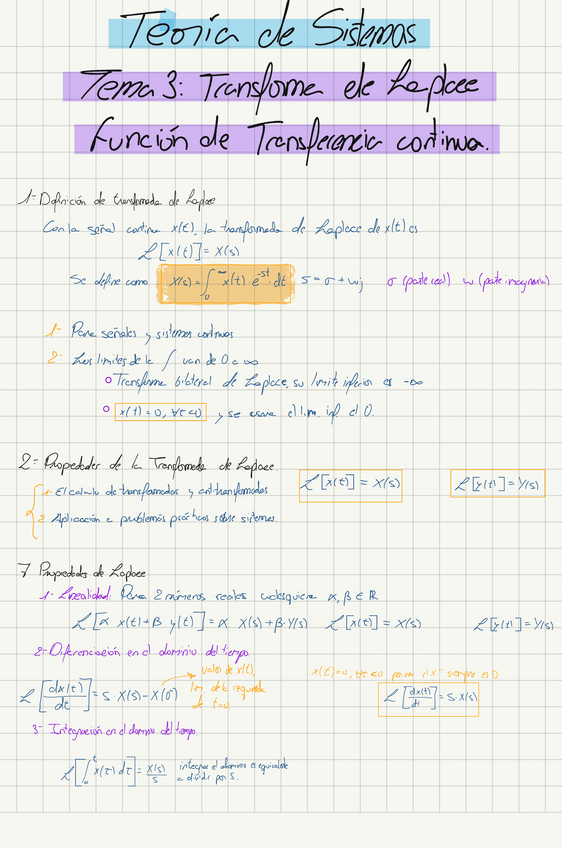 Teoría de Sistemas
Tema 3: Transforma de Laplace
Función de Transferencia continua.
1- Definición de transformada de Laplace
Con la señal continua x(t), la transformada de Laplace de x(t) es
L[x(t)] = X(s)
Se define como X(s) = ∫₀^∞ x(t)·e^-st·dt s = σ + ωj σ (parte real) ω (parte imaginaria)
1- Para señales y sistemas continuos
2- Los límites de la ∫ van de 0 a ∞
Transforma bilateral de Laplace, su límite inferior es -∞
x(t) = 0, ∀t<0 y se el lim. inf. el 0.
2- Propiedades de la Transformada de Laplace. L[x(t)] = X(s) L[y(t)] = Y(s)
1- El calculo de transformadas y antitransformadas
2- Aplicación a problemas prácticos sobre sistemas.
7 Propiedades de Laplace
1- Linealidad: Para 2 números reales cualesquiera α, β ∈ ℝ
L[α x(t) + β y(t)] = α X(s) + β·Y(s) L[x(t)] = X(s) L[y(t)] = Y(s)
2- Diferenciación en el dominio del tiempo
valor de x(t), x(t)=0, ∀t<0 siempre es 0
L[dx(t)/dt] = s·X(s) - X(0⁻) lim de la izquierda L[dx(t)/dt] = s·X(s)
de t=0
3- Integración en el dominio del tiempo.
L[∫₀^t x(τ) dτ] = X(s)/s integrar el dominio es equivalente
a dividir por s.